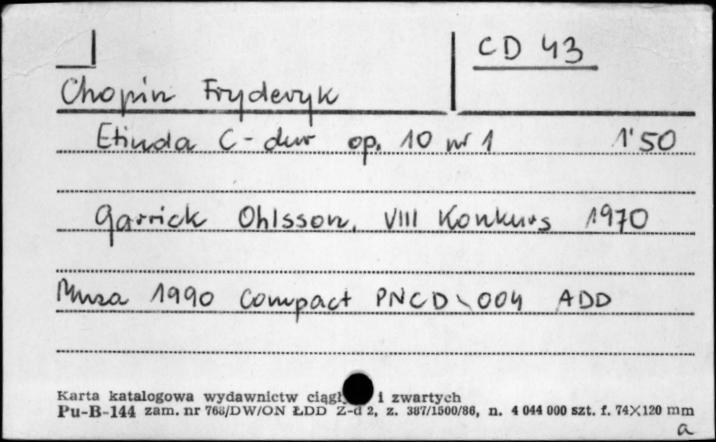 CD 43
Chopin Fryderyk
Etiuda C-dur op. 10 nr 1 1'50
Garrick Ohlsson, VIII Konkurs 1970
Muza 1990 Compact PNCD 004 ADD
Karta katalogowa wydawnictw i zwartych
Pu-B-144 zam. nr 768/DW/ON ŁDD Z-d 2, z. 387/1500/86, n. 4 044 000 szt. f. 74×120 mm
a